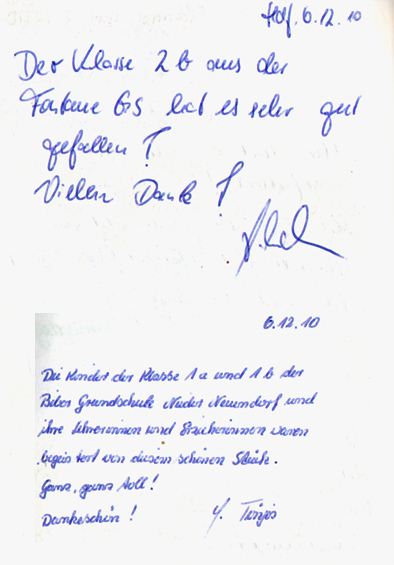 Hdf. 6.12.10
Der Klasse 2b aus der
Fontane GS hat es sehr gut
gefallen!
Vielen Dank!
6.12.10
Die Kinder der Klasse 1a und 1b der
Biber Grundschule Nieder Neuendorf und
ihre Lehrerinnen und Erzieherinnen waren
begeistert von diesem schönen Stück.
Ganz, ganz toll!
Dankeschön!